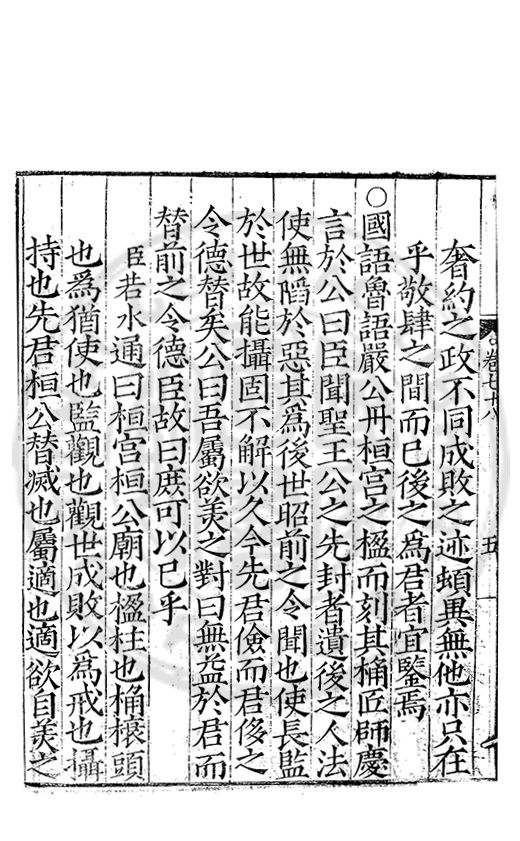 卷七十八
五
奢約之政不同成敗之迹頓異無他亦只在
乎敬肆之間而已後之爲君者宜鑒焉
○國語魯語嚴公丹桓宮之楹而刻其桷匠師慶
言於公曰臣聞聖王公之先封者遺後之人法
使無䧟於惡其爲後世昭前之令聞也使長監
於世故能攝固不解以久今先君儉而君侈之
令德替矣公曰吾屬欲美之對曰無益於君而
替前之令德臣故曰庶可以已乎
臣若水通曰桓宮桓公廟也楹柱也桷榱頭
也爲猶使也監觀也觀世成敗以爲戒也攝
持也先君桓公替滅也屬適也適欲自美之